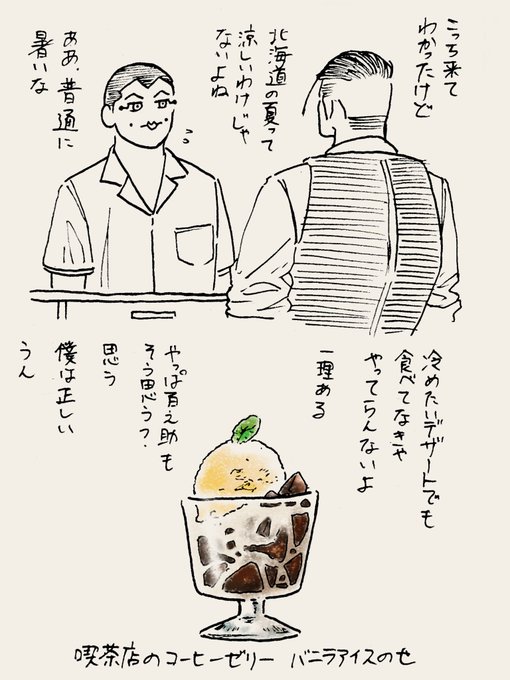 こっち来て
わかったけど
北海道の夏って
涼しいわけじゃ
ないよね
ああ、普通に
暑いな
冷めたいデザートでも
食べてなきゃ
やってらんないよ
一理ある
やっぱ百之助も
そう思う?
思う
僕は正しい
うん
喫茶店のコーヒーゼリー バニラアイスのせ